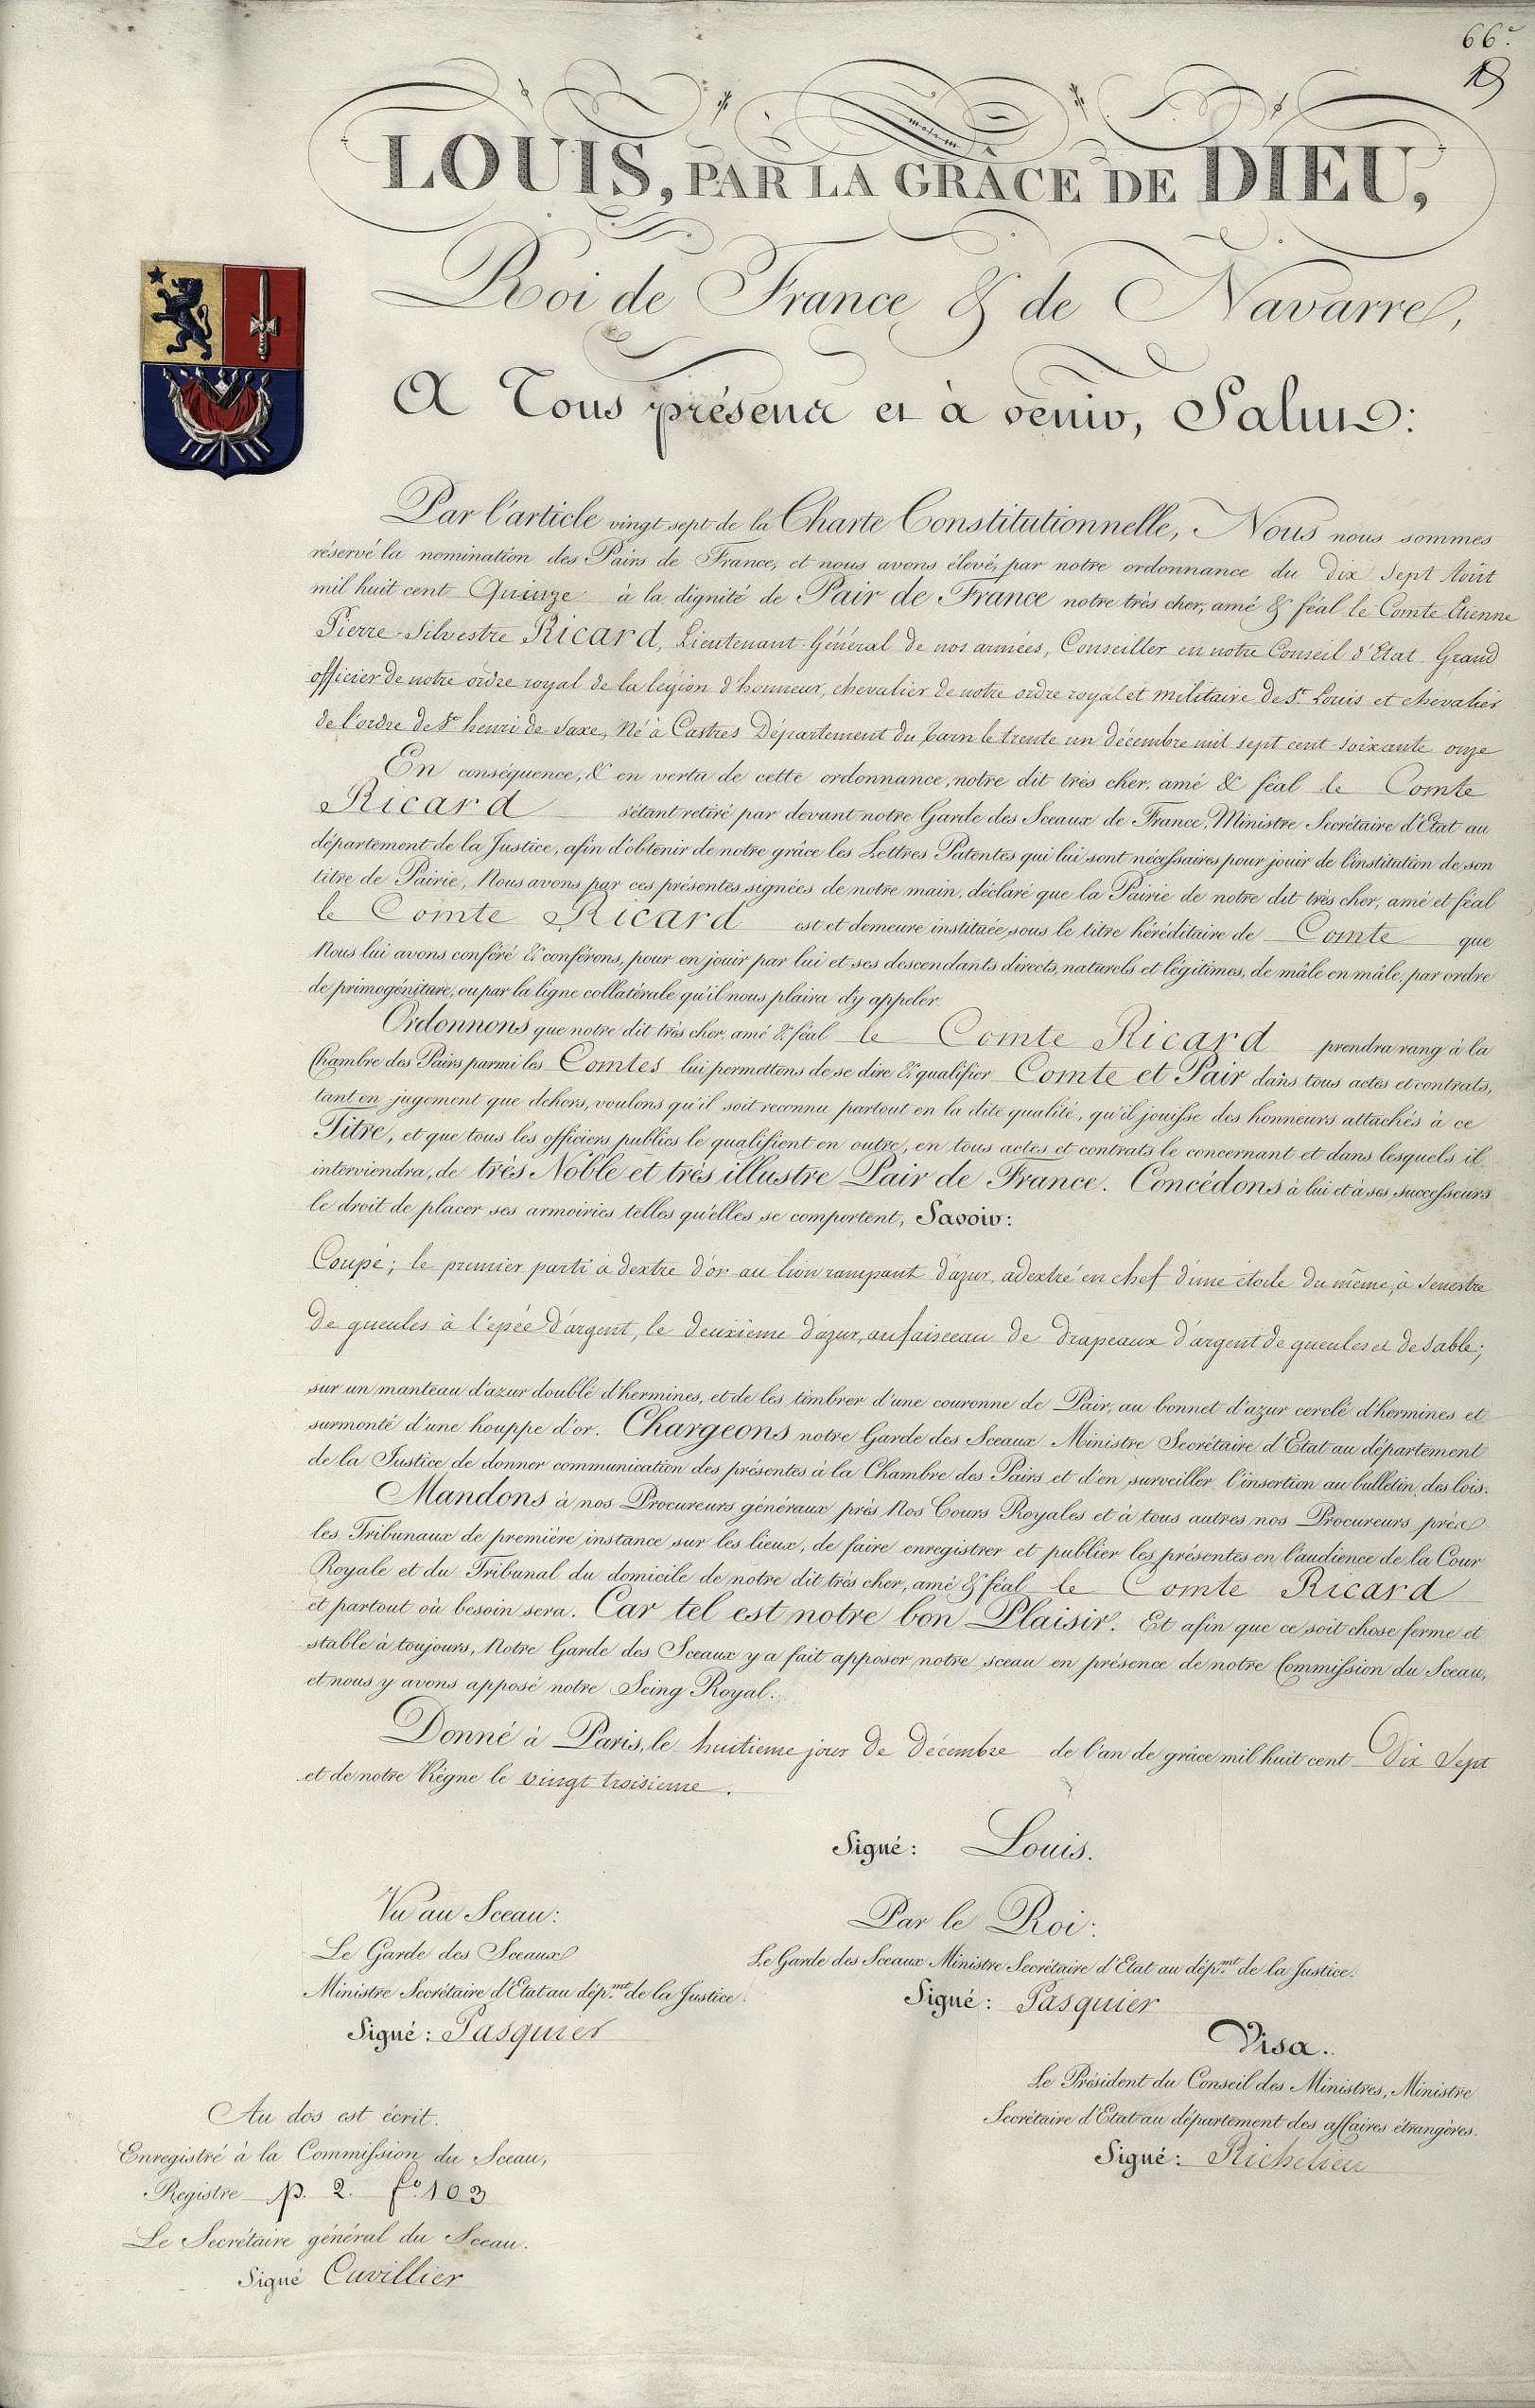 66e
19
LOUIS, PAR LA GRÂCE DE DIEU,
Roi de France & de Navarre,
A Tous présens et à venir, Salut:
Par l'article vingt sept de la Charte Constitutionnelle, Nous nous sommes
réservé la nomination des Pairs de France, et nous avons élevé, par notre ordonnance du dix Sept Août
mil huit cent Quinze à la dignité de Pair de France notre très cher, amé & féal le Comte Etienne
Pierre Silvestre Ricard, Lieutenant-Général de nos armées, Conseiller en notre Conseil d'Etat Grand
officier de notre ordre royal de la légion d'honneur, chevalier de notre ordre royal et militaire de St. Louis et chevalier
de l'ordre de St henri de Saxe, Né à Castres Département du Tarn le trente un décembre mil sept cent-soixante onze
En conséquence, & en vertu de cette ordonnance, notre dit très cher, amé & féal le Comte
Ricard s'étant retiré par devant notre Garde des Sceaux de France, Ministre Secrétaire d'Etat au
département de la Justice, afin d'obtenir de notre grâce les Lettres Patentes qui lui sont nécessaires pour jouir de l'institution de son
titre de Pairie, Nous avons par ces présentes signées de notre main, déclaré que la Pairie de notre dit très cher, amé et féal
le Comte Ricard est et demeure instituée sous le titre héréditaire de Comte que
Nous lui avons conféré & conférons, pour en jouir par lui et ses descendants directs, naturels et légitimes, de mâle en mâle, par ordre
de primogéniture, ou par la ligne collatérale qu'il nous plaira d'y appeler.
Ordonnons que notre dit très cher, amé & féal le Comte Ricard prendra rang à la
Chambre des Pairs parmi les Comtes lui permettons de se dire & qualifier Comte et Pair dans tous actes et contrats,
tant en jugement que dehors, voulons qu'il soit reconnu partout en la dite qualité, qu'il jouisse des honneurs attachés à ce
Titre, et que tous les officiers publics le qualifient en outre, en tous actes et contrats le concernant et dans lesquels il
interviendra, de très Noble et très illustre Pair de France. Concédons à lui et à ses successeurs
le droit de placer ses armoiries telles qu'elles se comportent, Savoir:
Coupé; le premier parti à dextre d'or au lion rampant d'azur, adextré en chef d'une étoile du même, à senestre
de gueules à l'epée d'argent, le deuxième d'azur, au faisceau de drapeaux d'argent de gueules et de sable;
sur un manteau d'azur doublé d'hermines, et de les timbrer d'une couronne de Pair, au bonnet d'azur cerclé d'hermines et
surmonté d'une houppe d'or. Chargeons notre Garde des Sceaux Ministre Secrétaire d'Etat au département
de la Justice de donner communication des présentes à la Chambre des Pairs et d'en surveiller l'insertion au bulletin des lois.
Mandons à nos Procureurs généraux près Nos Cours Royales et à tous autres nos Procureurs près
les Tribunaux de première instance sur les lieux, de faire enregistrer et publier les présentes en l'audience de la Cour
Royale et du Tribunal du domicile de notre dit très cher, amé & féal le Comte Ricard
et partout où besoin sera. Car tel est notre bon Plaisir. Et afin que ce soit chose ferme et
stable à toujours, Notre Garde des Sceaux y a fait apposer notre sceau en présence de notre Commission du Sceau,
et nous y avons apposé notre Seing Royal.
Donné à Paris, le huitieme jour de Décembre de l'an de grâce mil huit cent Dix Sept
et de notre Règne le vingt troisieme.
Signé: Louis.
Vu au Sceau:
Le Garde des Sceaux
Ministre Secrétaire d'Etat au dépmt. de la Justice.
Signé: Pasquier
Par le Roi:
Le Garde des Sceaux Ministre Secrétaire d'Etat au dépmt. de la Justice.
Signé: Pasquier
Visa.
Le Président du Conseil des Ministres, Ministre
Secrétaire d'Etat au département des affaires étrangères.
Signé: Richelieu
Au dos est écrit.
Enregistré à la Commission du Sceau,
Registre p. 2. fo. 103
Le Secrétaire général du Sceau.
Signé Cuvillier